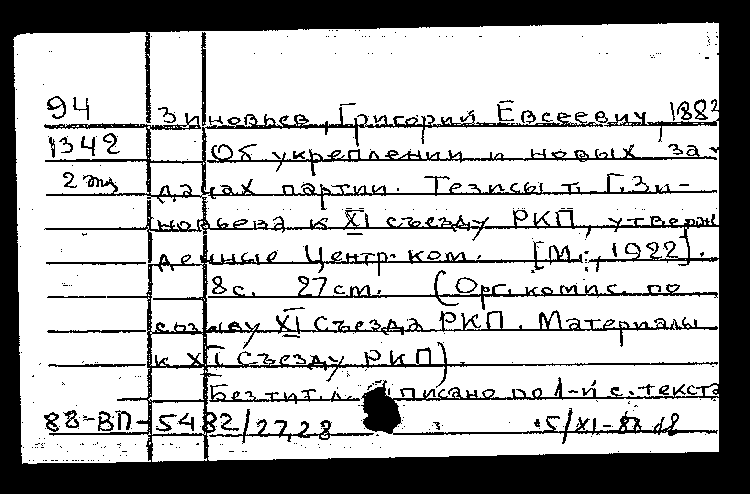 94 Зиновьев, Григорий Евсеевич, 1883
1342 Об укреплении и новых за-
2 экз дачах партии. Тезисы т. Г. Зи-
новьева к XI съезду РКП, утверж
денные Центр. ком. [М., 1922].
8 с. 27 cm. (Орг. комис. по
созыву XI Съезда РКП. Материалы
к XI Съезду РКП).
Без тит. л. писано по 1-й с. текста
88-ВП-5482/27,28 5/XI-88